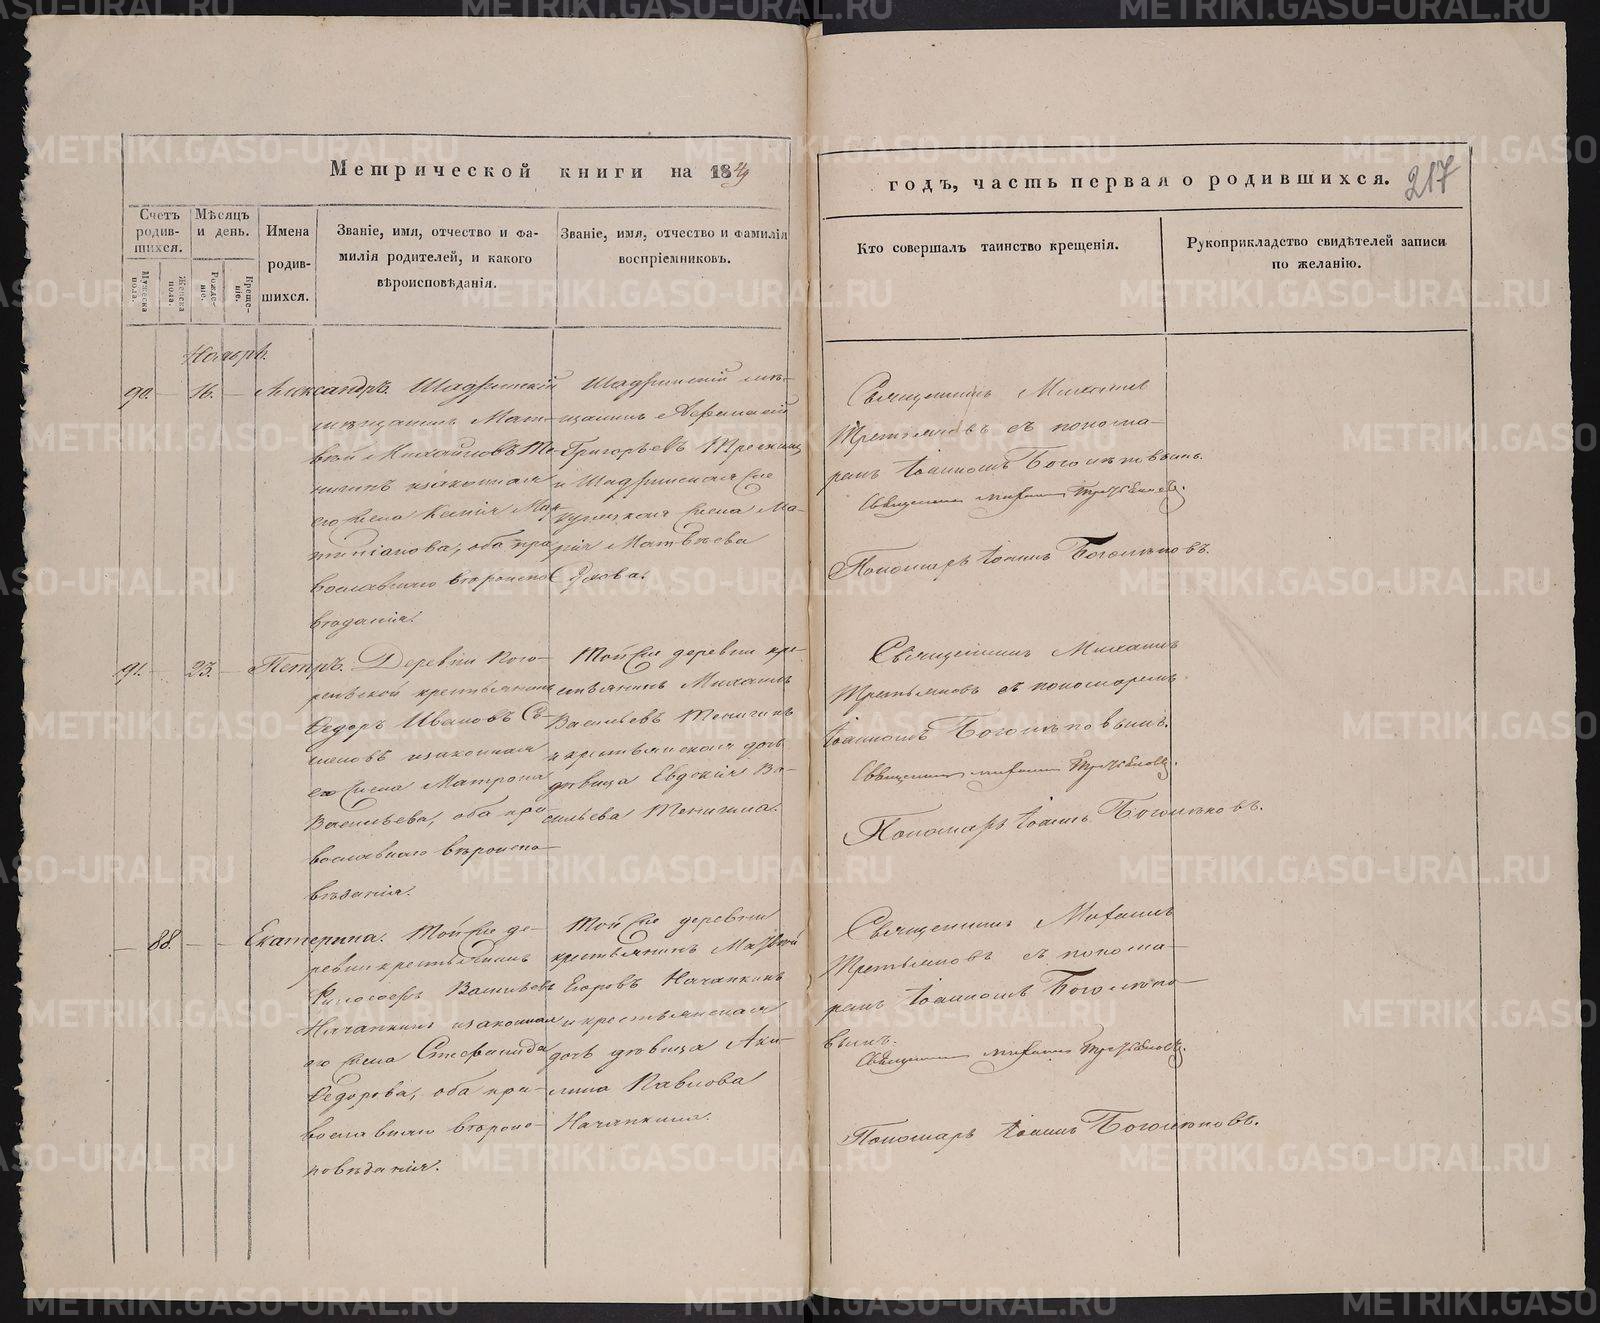 Метрической книги на 1849
годъ, часть первая о родившихся.
217
Счетъ родив-шихся.
Мѣсяцъ и день.
Имена родив-шихся.
Званіе, имя, отчество и фа-
милія родителей, и какого
вѣроисповѣданія.
Званіе, имя, отчество и фамилія
воспріемниковъ.
Кто совершалъ таинство крещенія.
Рукоприкладство свидѣтелей записи
по желанію.
Мужеска пола.
Женска пола.
Рожде-ніе.
Креще-ніе.
Ноябрь.
90. 16. Александръ. Шадринскій
мѣщанинъ Мат-
вѣй Михайловъ
и законная
его жена Ксенія
оба пра-
вославнаго вѣроиспо
вѣданія.
Шадринскій мѣ-
щанинъ Афанасій
Григорьевъ
и Шадринская
купецкая жена Ма-
рія Матвѣева
Священникъ Михаилъ
Третьяковъ съ понома-
ремъ Іоанномъ Боголѣповымъ.
Священникъ Михаилъ Третьяковъ.
Пономарь Іоаннъ Боголѣповъ.
91. 23. Петръ. Деревни
крестьянинъ
Ѳедоръ Ивановъ Се-
меновъ и законная
его жена Матрона
Васильева, оба пра-
вославнаго вѣроиспо-
вѣданія.
Той же деревни кре-
стьянинъ Михаилъ
Васильевъ Менигинъ
и крестьянская дочь
дѣвица Евдокія Ва-
сильева Менигина.
Священникъ Михаилъ
Третьяковъ съ пономаремъ
Іоанномъ Боголѣповымъ.
Священникъ Михаилъ Третьяковъ.
Пономарь Іоаннъ Боголѣповъ.
88. Екатерина. Той же де-
ревни крестьянинъ
Васильевъ
Начапкинъ и законная
его жена Стефанида
Ѳедорова, оба пра-
вославнаго вѣроис-
повѣданія.
Той же деревни
крестьянинъ
Егоровъ Начапкинъ
и крестьянская
дочь дѣвица Аки-
лина Павлова
Начапкина.
Священникъ Михаилъ
Третьяковъ съ понома-
ремъ Іоанномъ Боголѣпо-
вымъ.
Священникъ Михаилъ Третьяковъ.
Пономарь Іоаннъ Боголѣповъ.
METRIKI.GASO-URAL.RU